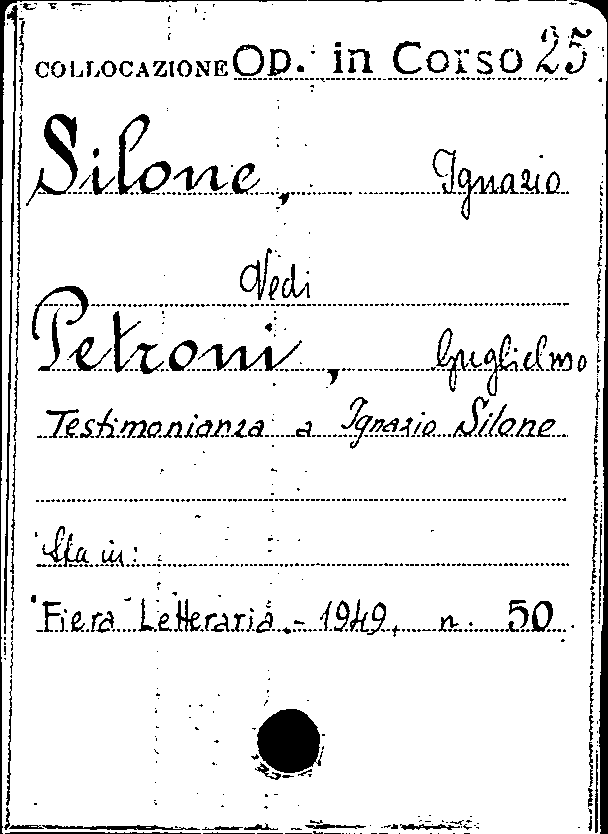 COLLOCAZIONE Op. in Corso 25
Silone, Ignazio
Vedi
Petroni, Guglielmo
Testimonianza a Ignazio Silone
Sta in:
"Fiera Letteraria" - 1949, n. 50